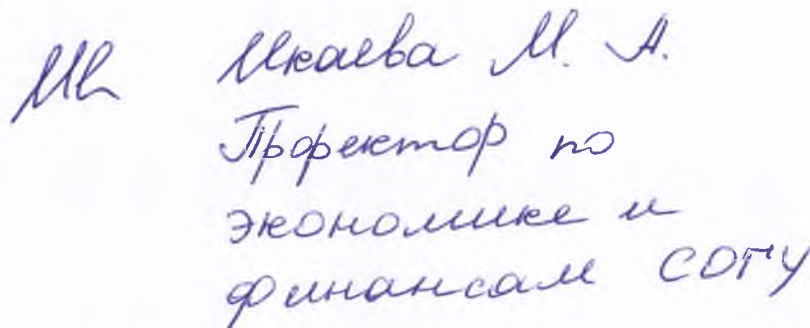 Икаева М. А.
Проректор по
экономике и
финансам СОГУ